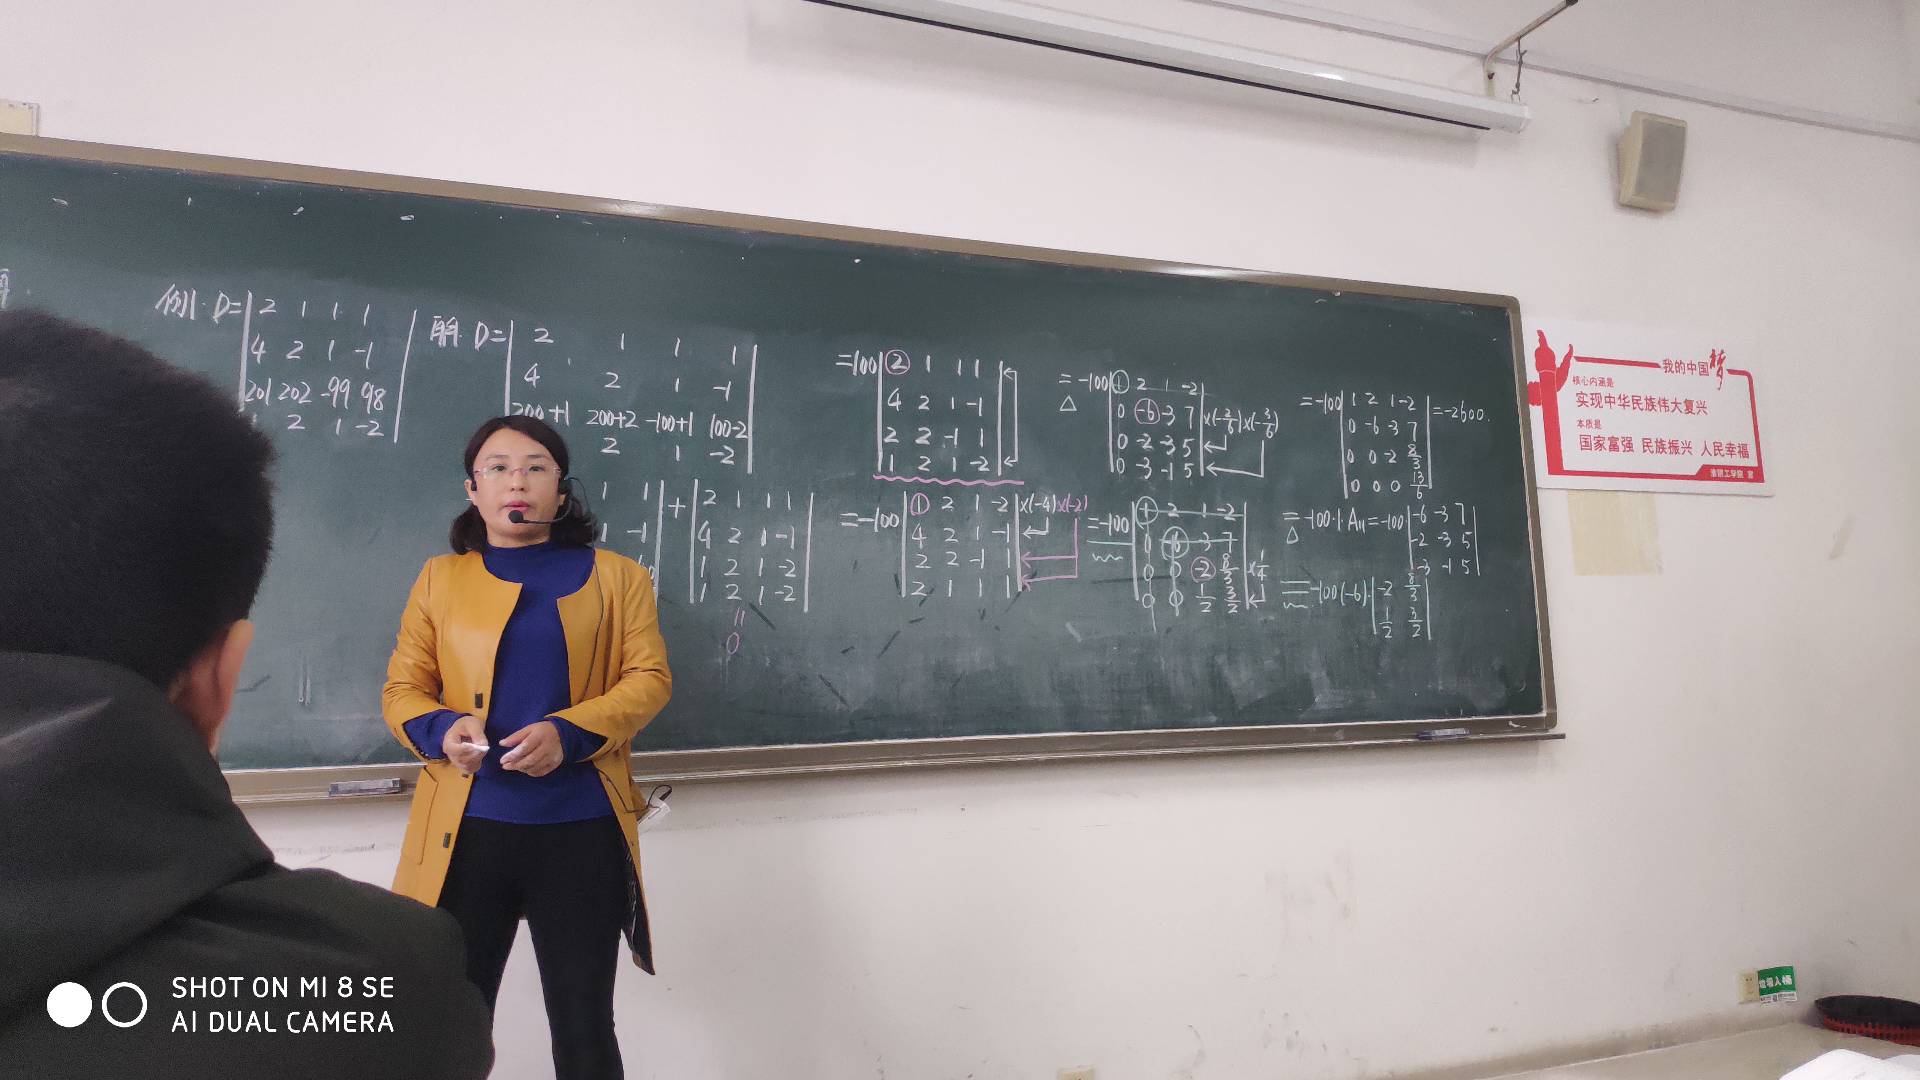 例1. D= 2 1 1 1
4 2 1 -1
201 202 -99 98
2 1 -2
解. D= 2 1 1 1
4 2 1 -1
200+1 200+2 -100+1 100-2
2 1 -2
1 1
1 -1
+ 2 1 1 1
4 2 1 -1
1 2 1 -2
1 2 1 -2
0
=-100 2 1 1 1
4 2 1 -1
2 2 -1 1
1 2 1 -2
=-100 1 2 1 -2 ×(-4) ×(-2)
4 2 1 -1
2 2 -1 1
2 1 1 1
= -100 1 2 1 -2
0 -6 -3 7 ×(-2/6) ×(-3/6)
0 -2 -3 5
0 -3 -1 5
=-100 1 2 1 -2
0 -6 -3 7
0 0 -2 8/3 ×1/4
0 0 1/2 3/2
=-100 1 2 1 -2 =-2600.
0 -6 -3 7
0 0 -2 8/3
0 0 0 13/6
= -100·1·A11=-100 -6 -3 7
-2 -3 5
-3 -1 5
=-100(-6)· -2 8/3
1/2 3/2
我的中国梦
核心内涵是
实现中华民族伟大复兴
本质是
国家富强 民族振兴 人民幸福
SHOT ON MI 8 SE
AI DUAL CAMERA